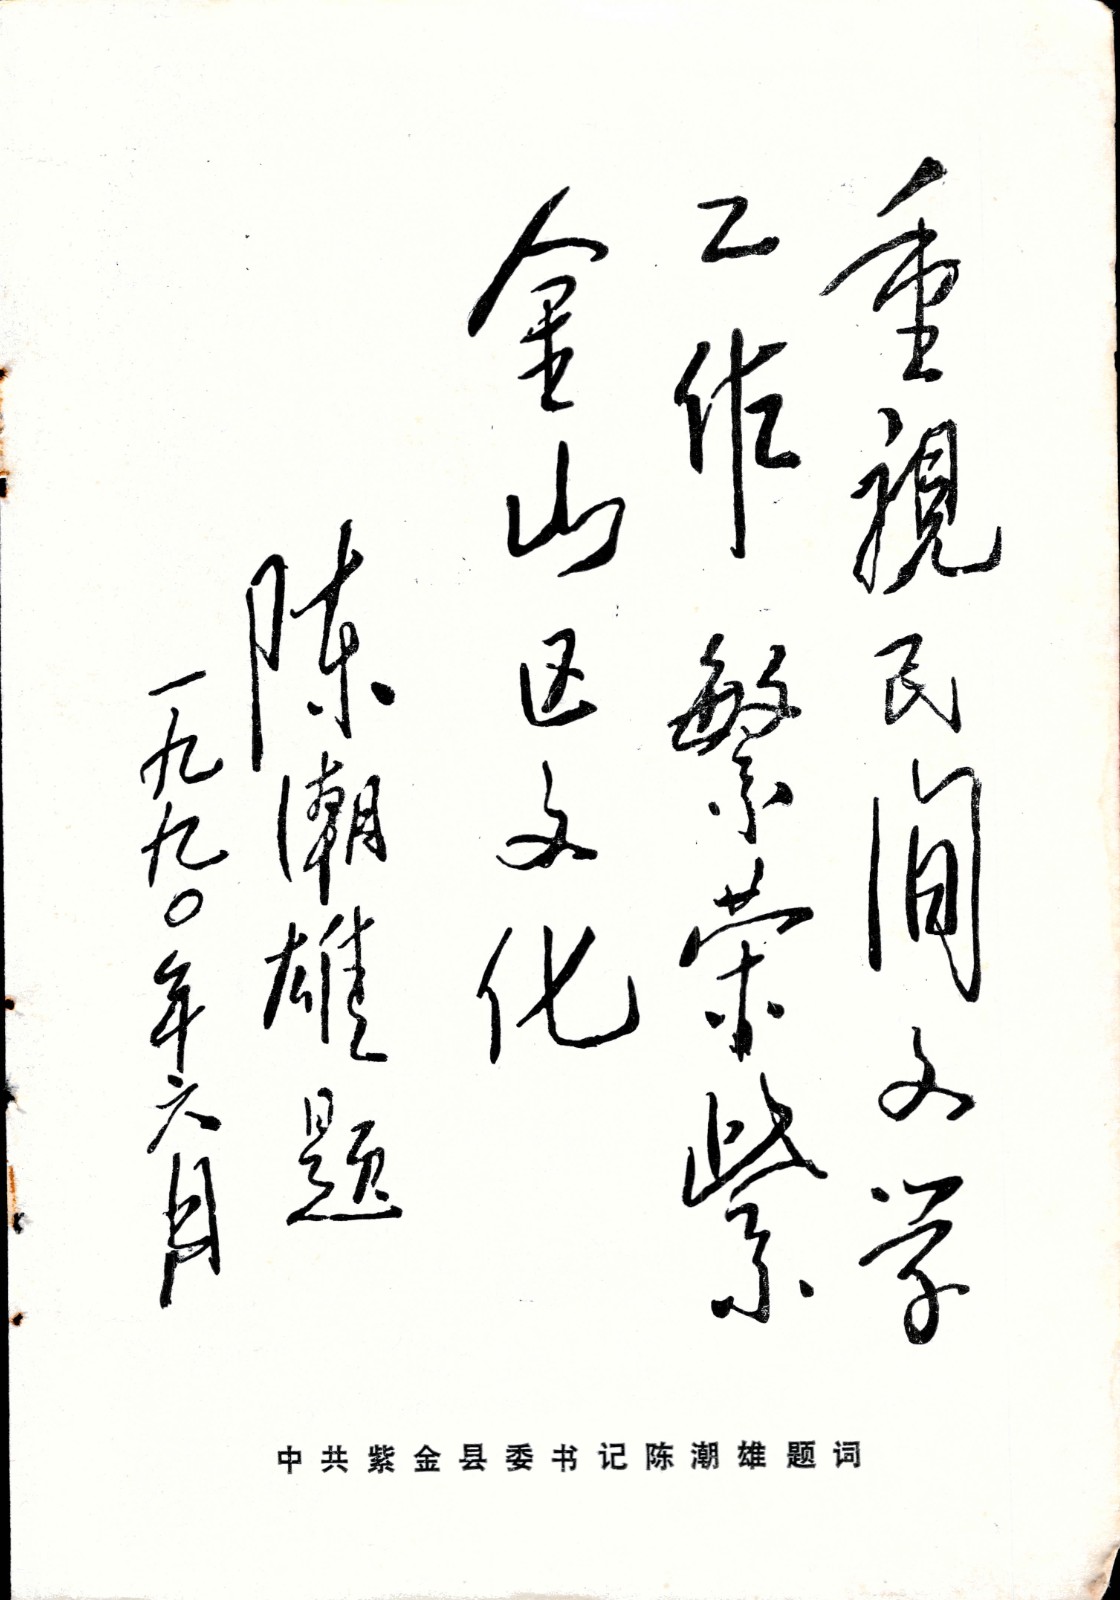 重視民间文学
工作繁荣紫
金山区文化
陈潮雄题
一九九〇年六月
中共紫金县委书记陈潮雄题词